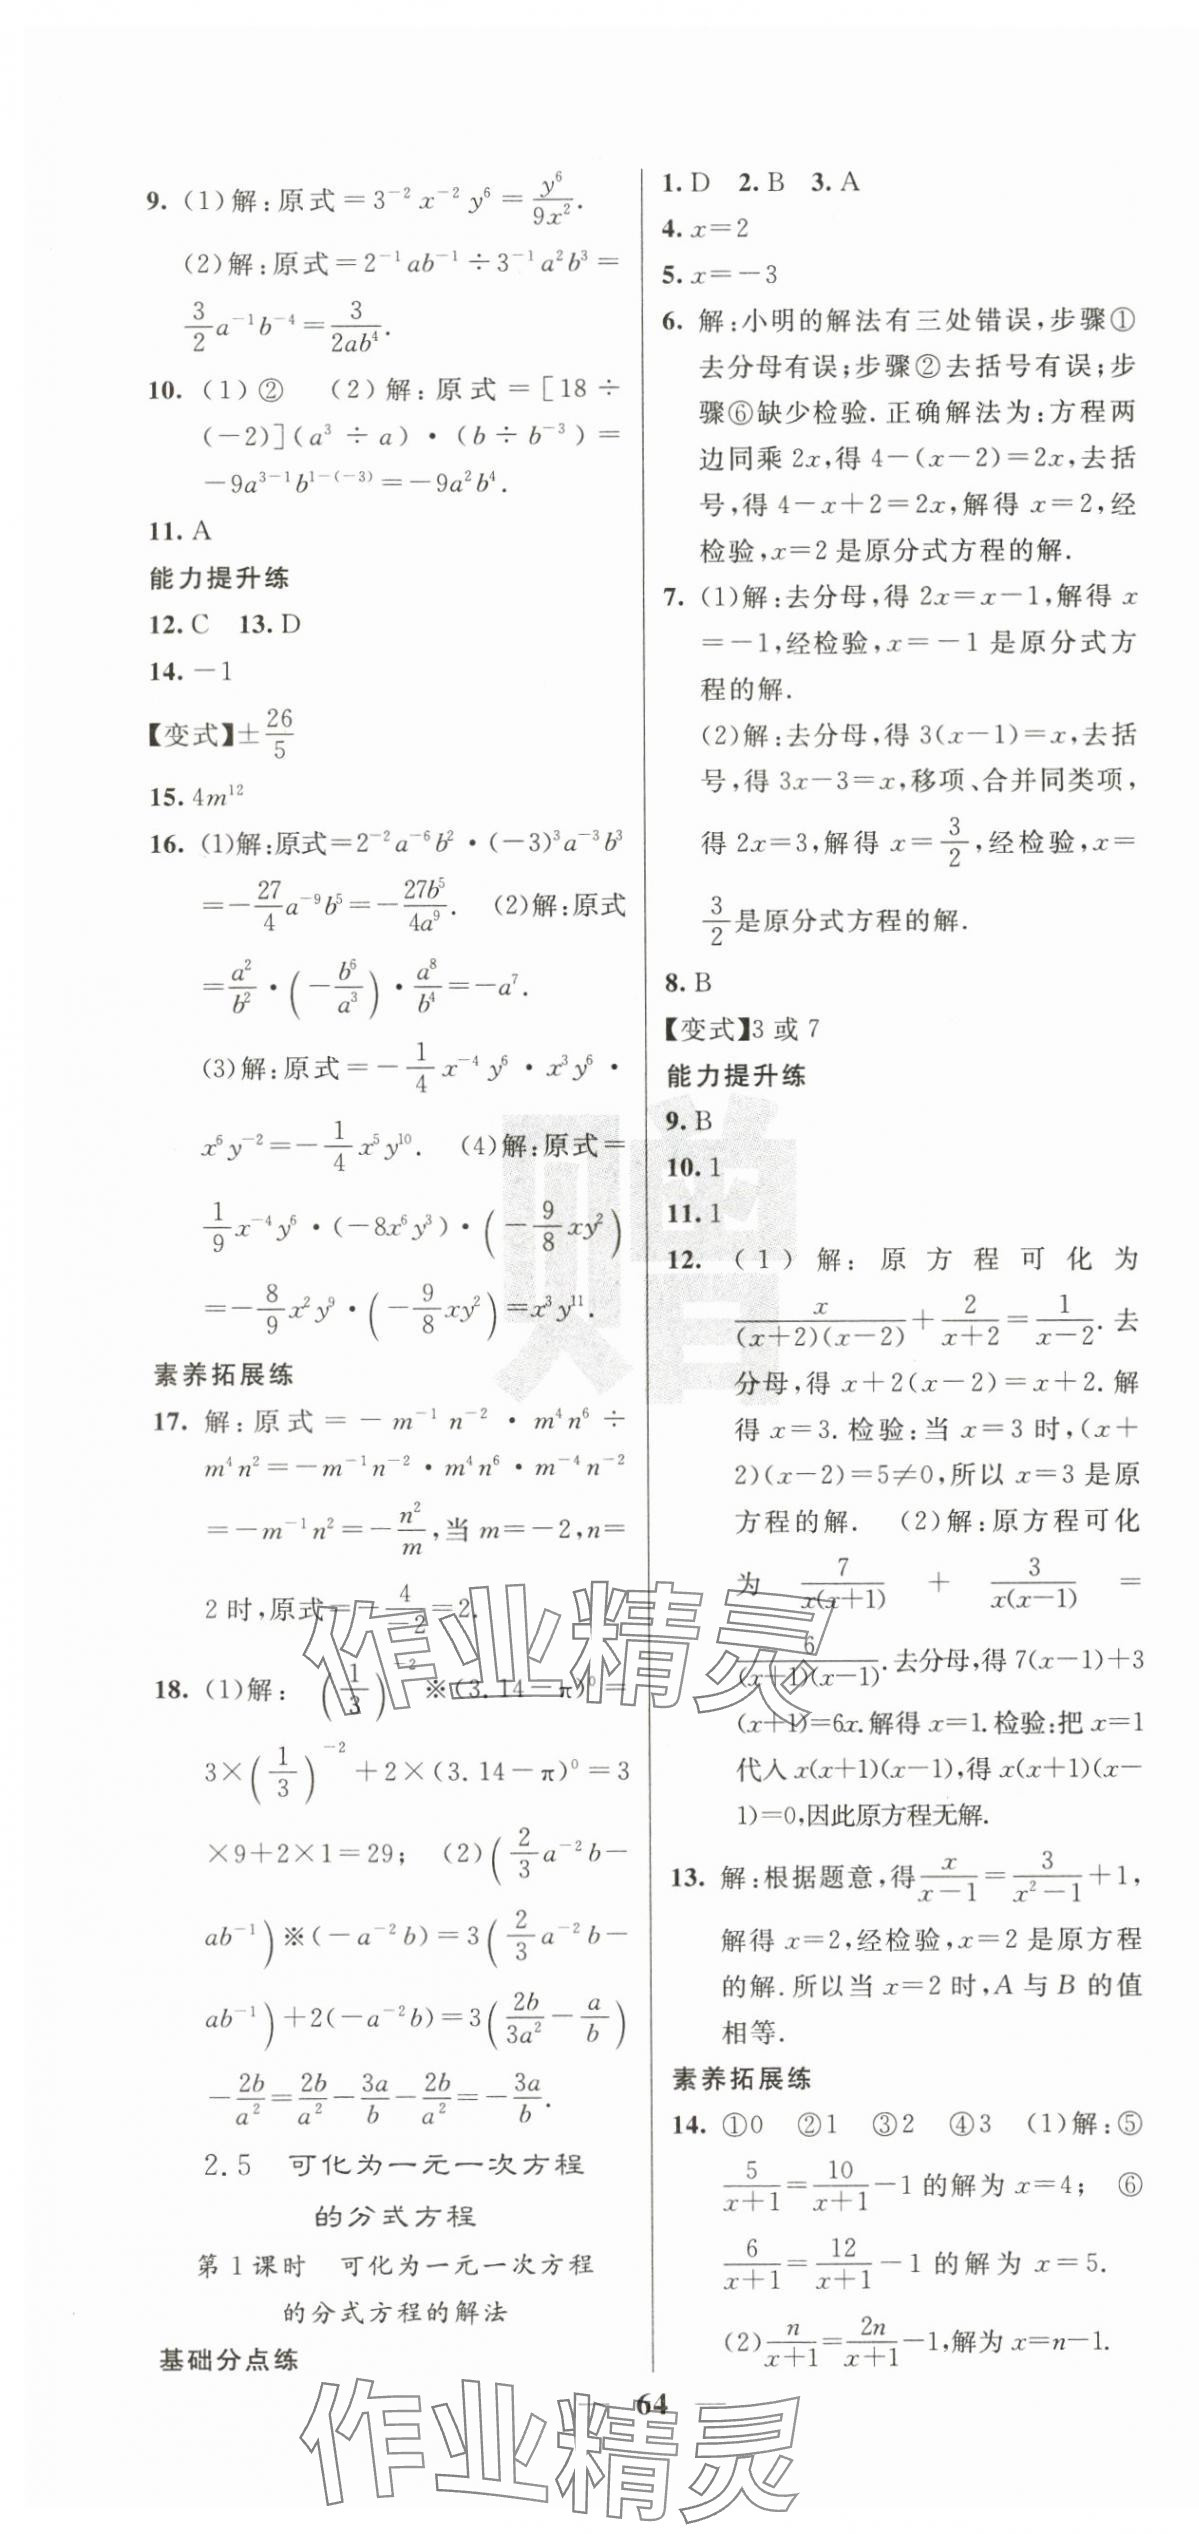 9. (1)解:原式=3⁻²x⁻²y⁶=y⁶/9x².
(2)解:原式=2⁻¹ab⁻¹÷3⁻¹a²b³=
3/2 a⁻¹b⁻⁴=3/2ab⁴.
10. (1)② (2)解:原式=[18÷
(-2)](a³÷a)·(b÷b⁻³)=
-9a³⁻¹b¹⁻⁽⁻³⁾=-9a²b⁴.
11. A
能力提升练
12. C 13. D
14. -1
【变式】±26/5
15. 4m¹²
16. (1)解:原式=2⁻²a⁻⁶b²·(-3)³a⁻³b³
=-27/4 a⁻⁹b⁵=-27b⁵/4a⁹. (2)解:原式
=a²/b²·(-b⁶/a³)·a⁸/b⁴=-a⁷.
(3)解:原式=-1/4 x⁻⁴y⁶·x³y⁶·
x⁶y⁻²=-1/4 x⁵y¹⁰. (4)解:原式=
1/9 x⁻⁴y⁶·(-8x⁶y³)·(-9/8 xy²)
=-8/9 x²y⁹·(-9/8 xy²)=x³y¹¹.
素养拓展练
17. 解:原式=-m⁻¹n⁻²·m⁴n⁶÷
m⁴n²=-m⁻¹n⁻²·m⁴n⁶·m⁻⁴n⁻²
=-m⁻¹n²=-n²/m,当m=-2,n=
2时,原式=-4/-2=2.
18. (1)解: (1/3)⁻²※(3.14-π)⁰=
3×(1/3)⁻²+2×(3.14-π)⁰=3
×9+2×1=29; (2)(2/3 a⁻²b-
ab⁻¹)※(-a⁻²b)=3(2/3 a⁻²b-
ab⁻¹)+2(-a⁻²b)=3(2b/3a²-a/b)
-2b/a²=2b/a²-3a/b-2b/a²=-3a/b.
2.5 可化为一元一次方程
的分式方程
第1课时 可化为一元一次方程
的分式方程的解法
基础分点练
1. D 2. B 3. A
4. x=2
5. x=-3
6. 解:小明的解法有三处错误,步骤①
去分母有误;步骤②去括号有误;步
骤⑥缺少检验.正确解法为:方程两
边同乘2x,得4-(x-2)=2x,去括
号,得4-x+2=2x,解得x=2,经
检验,x=2是原分式方程的解.
7. (1)解:去分母,得2x=x-1,解得x
=-1,经检验,x=-1是原分式方
程的解.
(2)解:去分母,得3(x-1)=x,去括
号,得3x-3=x,移项、合并同类项,
得2x=3,解得x=3/2,经检验,x=
3/2是原分式方程的解.
8. B
【变式】3或7
能力提升练
9. B
10. 1
11. 1
12. (1)解:原方程可化为
x/(x+2)(x-2)+2/x+2=1/x-2.去
分母,得x+2(x-2)=x+2.解
得x=3.检验:当x=3时,(x+
2)(x-2)=5≠0,所以x=3是原
方程的解. (2)解:原方程可化
为 7/x(x+1) + 3/x(x-1) =
6/(x+1)(x-1).去分母,得7(x-1)+3
(x+1)=6x.解得x=1.检验:把x=1
代入x(x+1)(x-1),得x(x+1)(x-
1)=0,因此原方程无解.
13. 解:根据题意,得x/x-1=3/x²-1+1,
解得x=2,经检验,x=2是原方程
的解.所以当x=2时,A与B的值
相等.
素养拓展练
14. ①0 ②1 ③2 ④3 (1)解:⑤
5/x+1=10/x+1-1的解为x=4; ⑥
6/x+1=12/x+1-1的解为x=5.
(2)n/x+1=2n/x+1-1,解为x=n-1.
64
赠
作业精灵
作业精灵